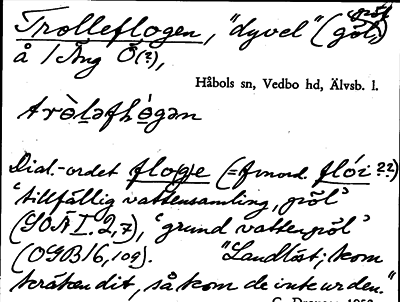 pöl
Trolleflogen, "dyvel" (göl,)
å / Äng Ö(?),
Håbols sn, Vedbo hd, Älvsb. l.
Dial.-ordet flog̲e (= fvnord. flói ??)
'tillfällig vattensamling, pöl'
(SOÄ I. 2, 7), 'grund vattenpöl'
(OGB 16, 109). "Landlöst; kom
kräken dit, så kom de inte ur den."